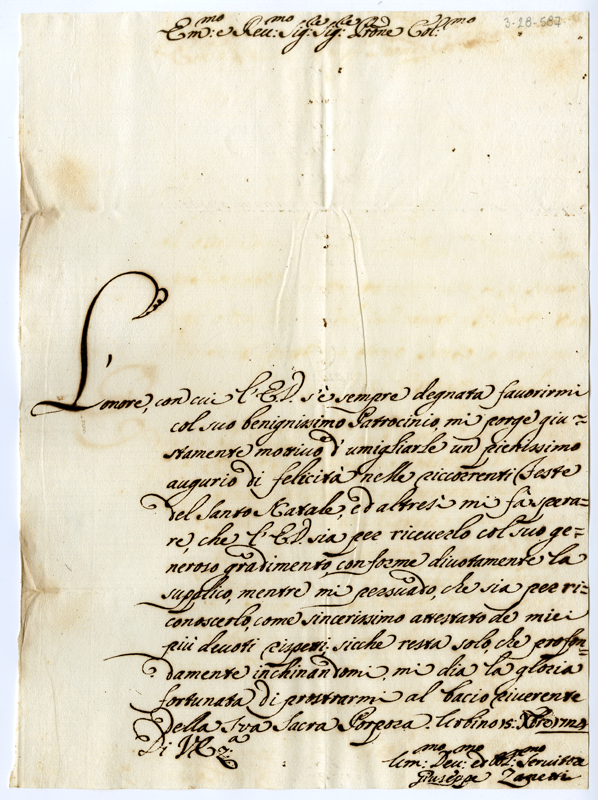 3-28-587
Em:mo e Rev:mo Sig:re Sig:re Prone Col:mo
L'onore, con cui l'E.V. s'è sempre degnata favorirmi
col suo benignissimo Patrocinio, mi porge giu-
stamente motivo d'umigliarle un pienissimo
augurio di felicità nelle ricorrenti Feste
del Santo Natale, ed altresì mi fà spera=
re, che l'E.V. sia per riceverlo col suo ge=
neroso gradimento, conforme divotamente la
supplico, mentre mi persuado, che sia per ri=
conoscerlo, come sincerissimo attestato de miei
più devoti rispetti, sicche resta solo, che profon=
damente inchinandomi, mi dia la gloria
fortunata di prostrarmi al bacio riverente
della Sua Sacra Porpora. Urbino 15: Xbre
Di V.E.
Um:mo Dev:mo ed Obl:mo Servitore
Giuseppe